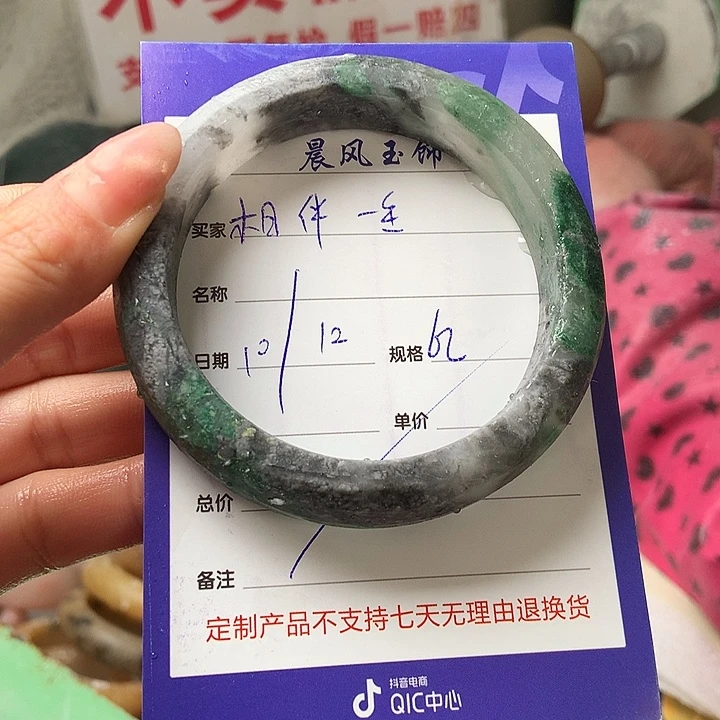 假一赔加
晨风玉饰
买家 相伴一生
名称
日期 10/12 规格 62
单价
总价
备注
定制产品不支持七天无理由退换货
抖音电商
QIC中心